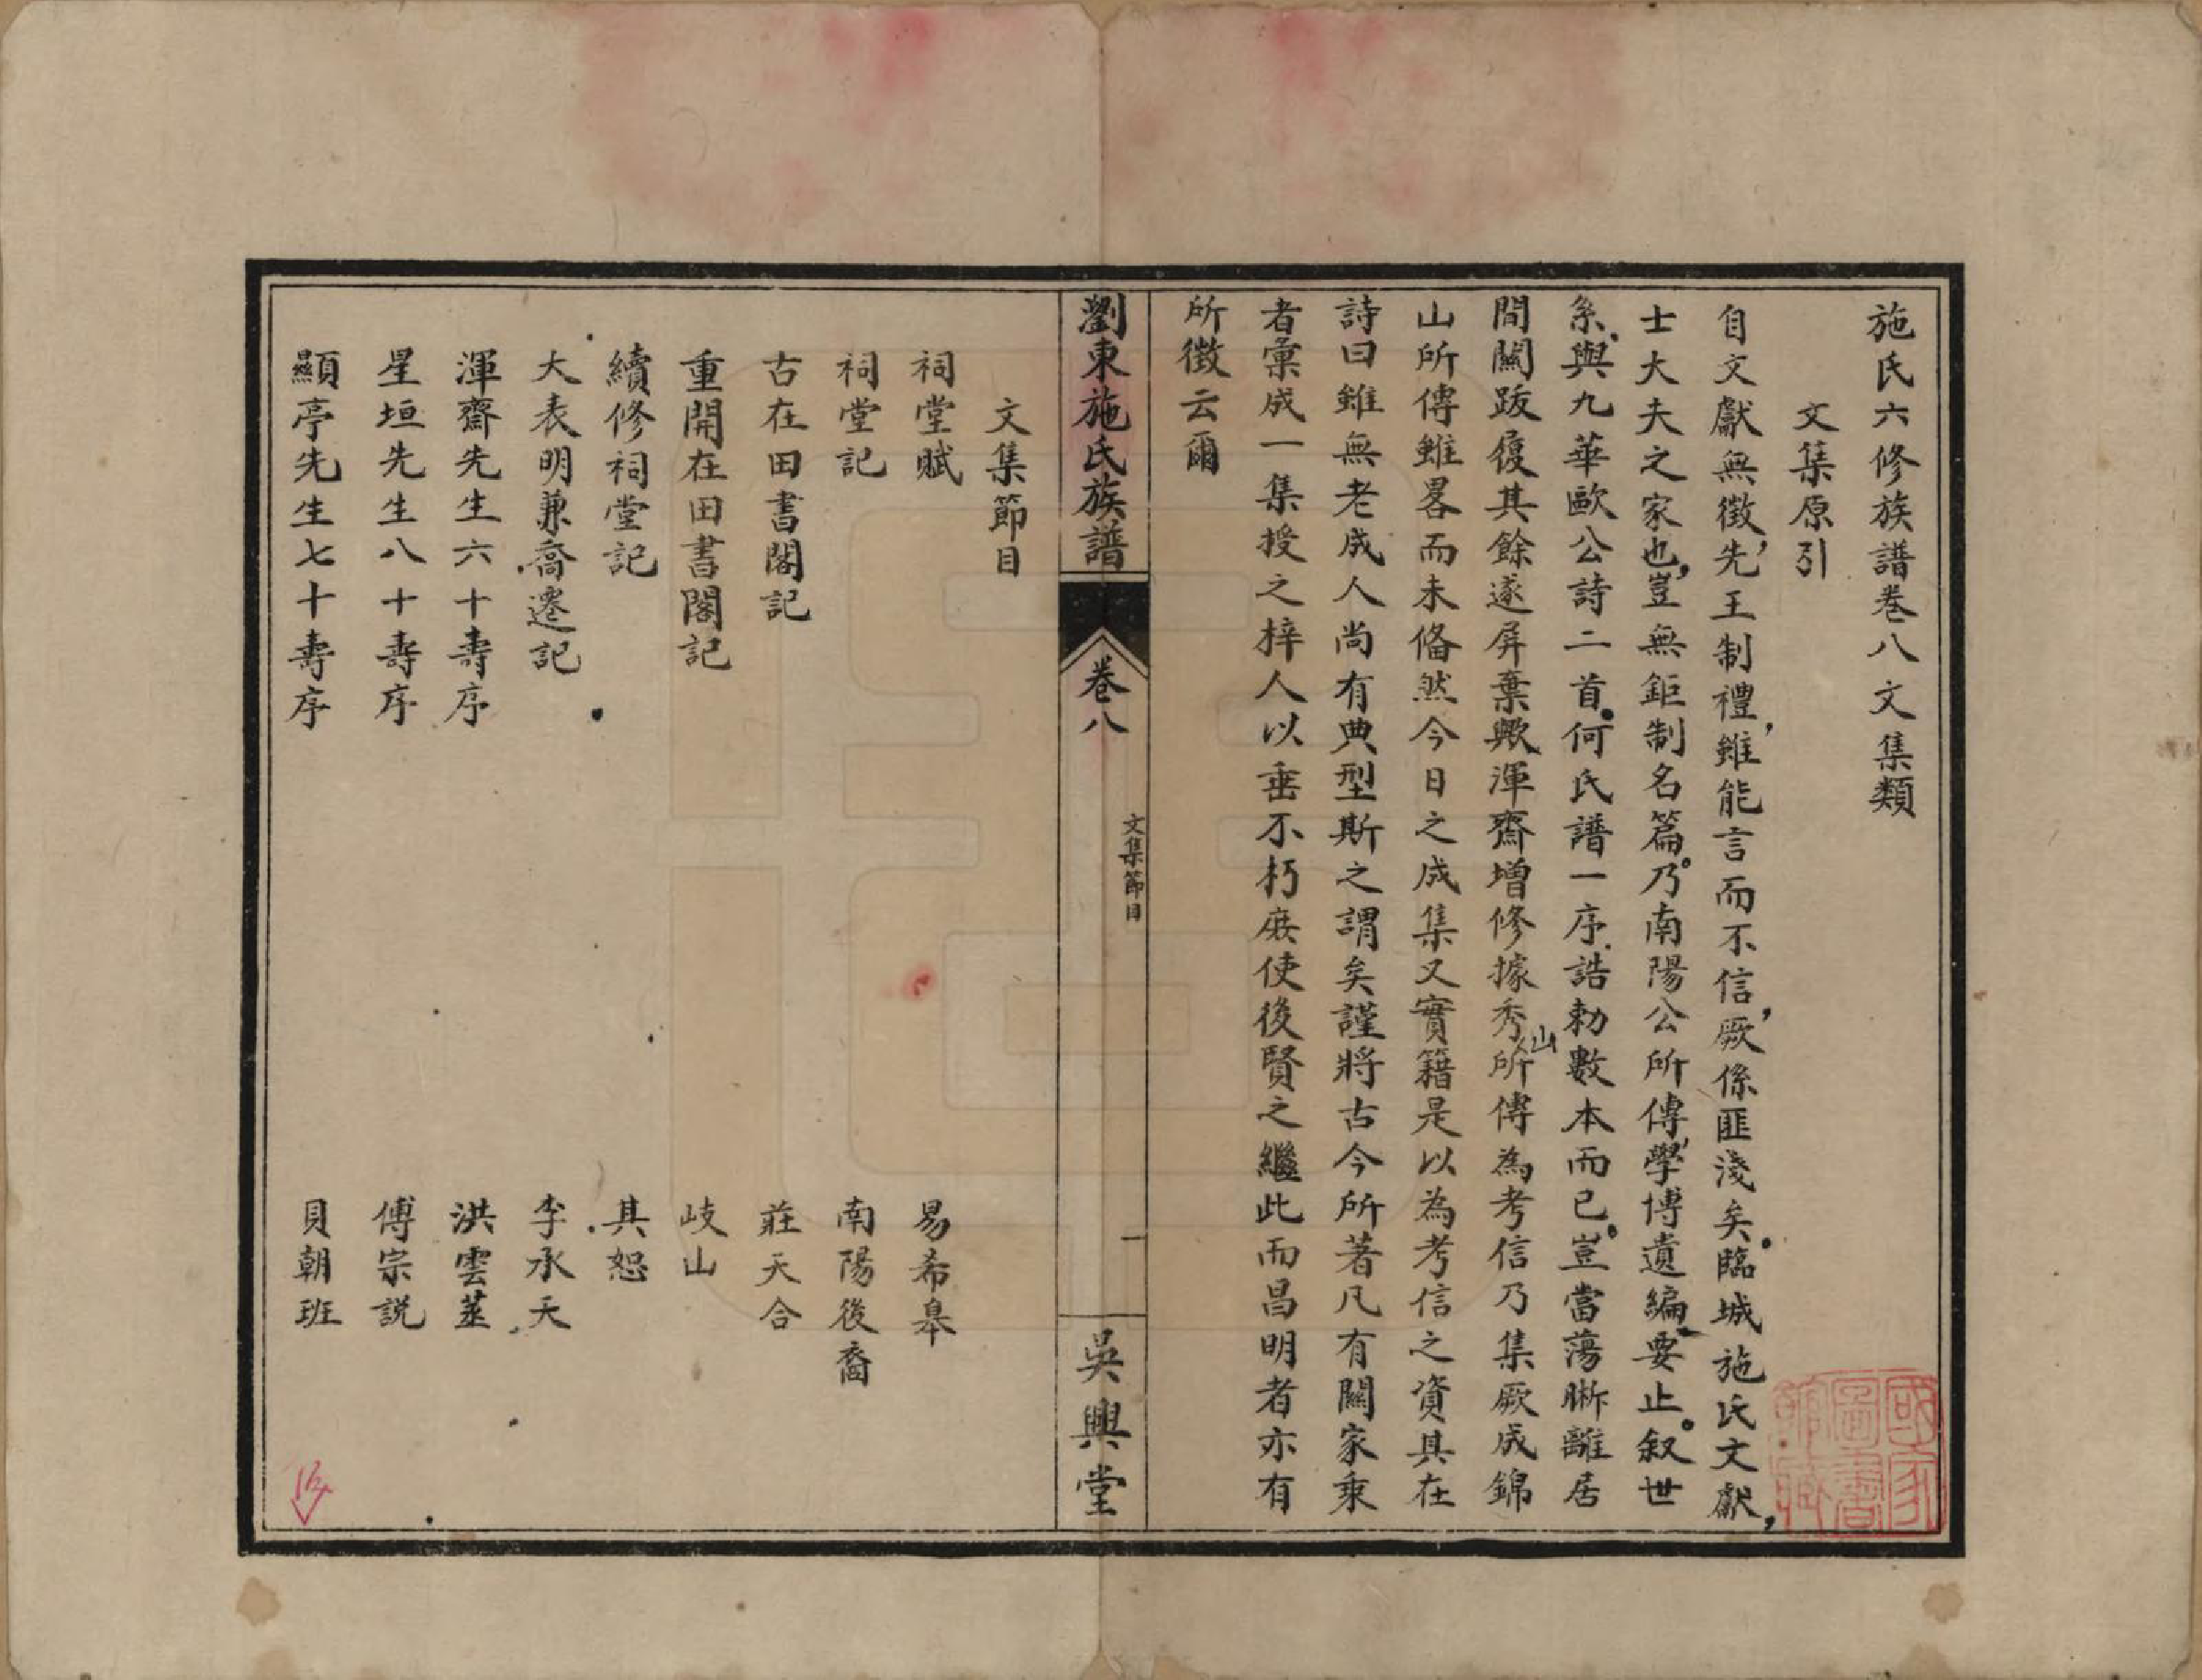 施氏六修族譜卷八文集類
文集原引
自文獻無徵，先王制禮，雖能言而不信，厥係匪淺矣。臨城施氏文獻，
士大夫之家也，豈無鉅制名篇。乃南陽公所傳，學博遺編，要止。叙世
系、與九華歐公詩二首。何氏譜一序、誥勅數本而已。豈當蕩晰離居
間關跋履其餘遂屏棄歟渾齋增修據秀山所傳為考信乃集厥成錦
山所傳雖畧而未俻然今日之成集又實籍是以為考信之資其在
詩曰雖無老成人尚有典型斯之謂矣謹將古今所著凡有關家乘
者彙成一集授之梓人以垂不朽庶使後賢之繼此而昌明者亦有
所徵云爾
瀏東施氏族譜
卷八
文集節目
一
吳興堂
文集節目
祠堂賦 易希皋
祠堂記 南陽後裔
古在田書閣記 莊天合
重開在田書閣記 岐山
續修祠堂記 其恕
大表明兼喬遷記 李永天
渾齋先生六十壽序 洪雲蒸
星垣先生八十壽序 傅宗説
顯亭先生七十壽序 貝朝班
國家
圖書
館藏